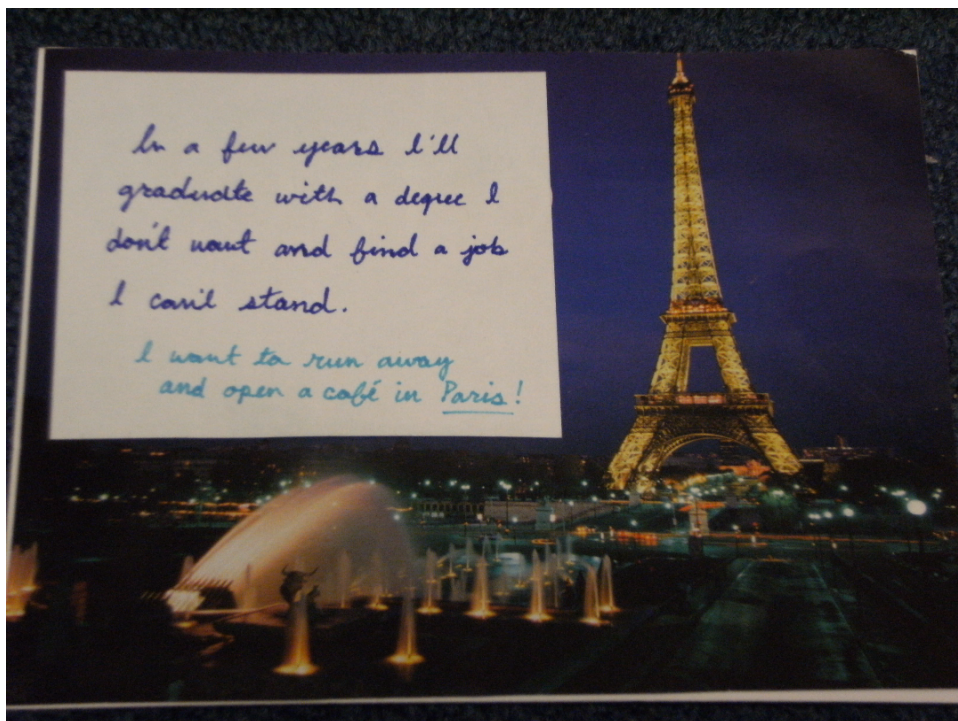 In a few years I'll
graduate with a degree I
don't want and find a job
I can't stand.
I want to run away
and open a café in Paris!